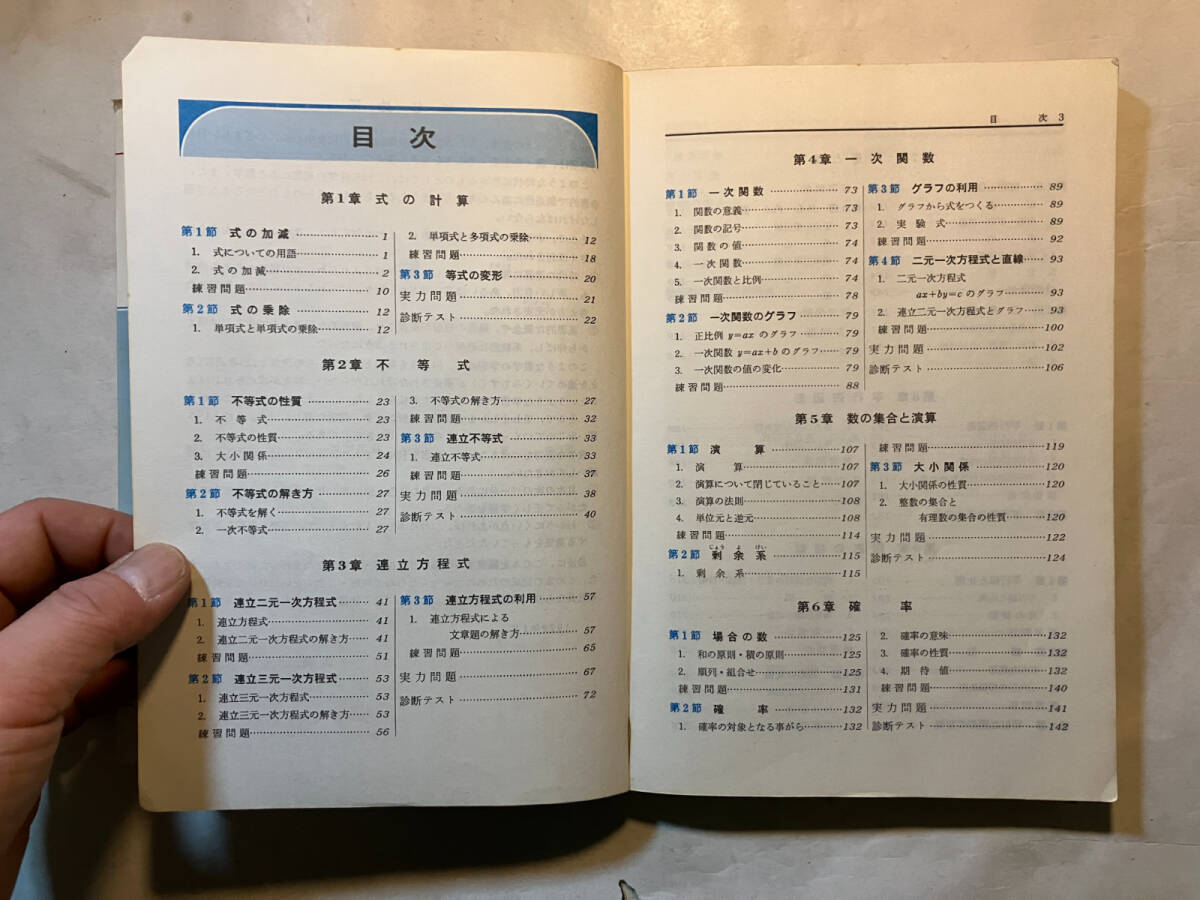 目次
第1章 式の計算
第1節 式の加減 1
1. 式についての用語 1
2. 式の加減 2
練習問題 10
第2節 式の乗除 12
1. 単項式と単項式の乗除 12
2. 単項式と多項式の乗除 12
練習問題 18
第3節 等式の変形 20
実力問題 21
診断テスト 22
第2章 不等式
第1節 不等式の性質 23
1. 不等式 23
2. 不等式の性質 23
3. 大小関係 24
練習問題 26
第2節 不等式の解き方 27
1. 不等式を解く 27
2. 一次不等式 27
3. 不等式の解き方 27
練習問題 32
第3節 連立不等式 33
1. 連立不等式 33
練習問題 37
実力問題 38
診断テスト 40
第3章 連立方程式
第1節 連立二元一次方程式 41
1. 連立方程式 41
2. 連立二元一次方程式の解き方 41
練習問題 51
第2節 連立三元一次方程式 53
1. 連立三元一次方程式 53
2. 連立三元一次方程式の解き方 53
練習問題 56
第3節 連立方程式の利用 57
1. 連立方程式による
文章題の解き方 57
練習問題 65
実力問題 67
診断テスト 72
目次 3
第4章 一次関数
第1節 一次関数 73
1. 関数の意義 73
2. 関数の記号 73
3. 関数の値 74
4. 一次関数 74
5. 一次関数と比例 74
練習問題 78
第2節 一次関数のグラフ 79
1. 正比例 y=ax のグラフ 79
2. 一次関数 y=ax+b のグラフ 79
3. 一次関数の値の変化 79
練習問題 88
第3節 グラフの利用 89
1. グラフから式をつくる 89
2. 実験式 89
練習問題 92
第4節 二元一次方程式と直線 93
1. 二元一次方程式
ax+by=c のグラフ 93
2. 連立二元一次方程式とグラフ 93
練習問題 100
実力問題 102
診断テスト 106
第5章 数の集合と演算
第1節 演算 107
1. 演算 107
2. 演算について閉じていること 107
3. 演算の法則 108
4. 単位元と逆元 108
練習問題 114
じょうよけい
第2節 剰余系 115
1. 剰余系 115
練習問題 119
第3節 大小関係 120
1. 大小関係の性質 120
2. 整数の集合と
有理数の集合の性質 120
実力問題 122
診断テスト 124
第6章 確率
第1節 場合の数 125
1. 和の原則・積の原則 125
2. 順列・組合せ 125
練習問題 131
第2節 確率 132
1. 確率の対象となる事がら 132
2. 確率の意味 132
3. 確率の性質 132
4. 期待値 132
練習問題 140
実力問題 141
診断テスト 142